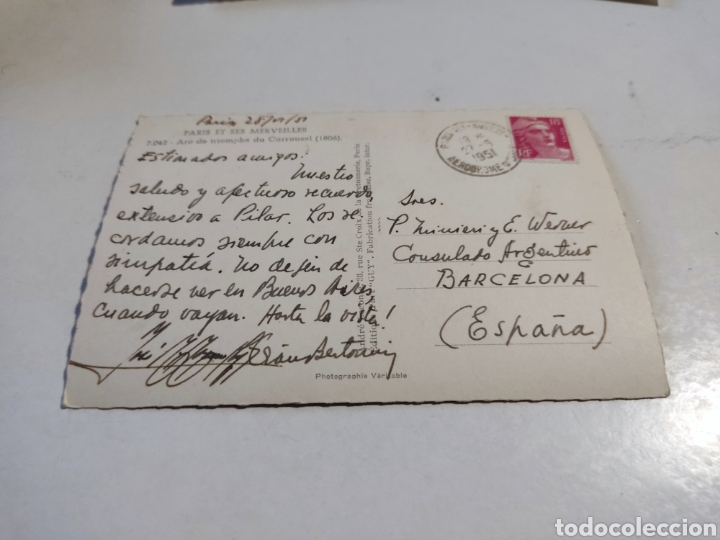 Paris 28/VI/51
PARIS ET SES MERVEILLES
7.042 - Arc de triomphe du Carrousel (1806).
Estimados amigos:
Nuestro
saludo y afectuoso recuerdo
extensivo a Pilar. Los re
cordamos siempre con
simpatía. No dejen de
hacerse ver en Buenos Aires
cuando vayan. Hasta la vista!
Photographie Véritable
rue Ste Croix de la Bretonnerie, Paris
"GUY". Fabrication française. Repr. inter.
1951
RF
Sres.
P. y E. Werner
Consulado Argentino
BARCELONA
(España)
todocoleccion